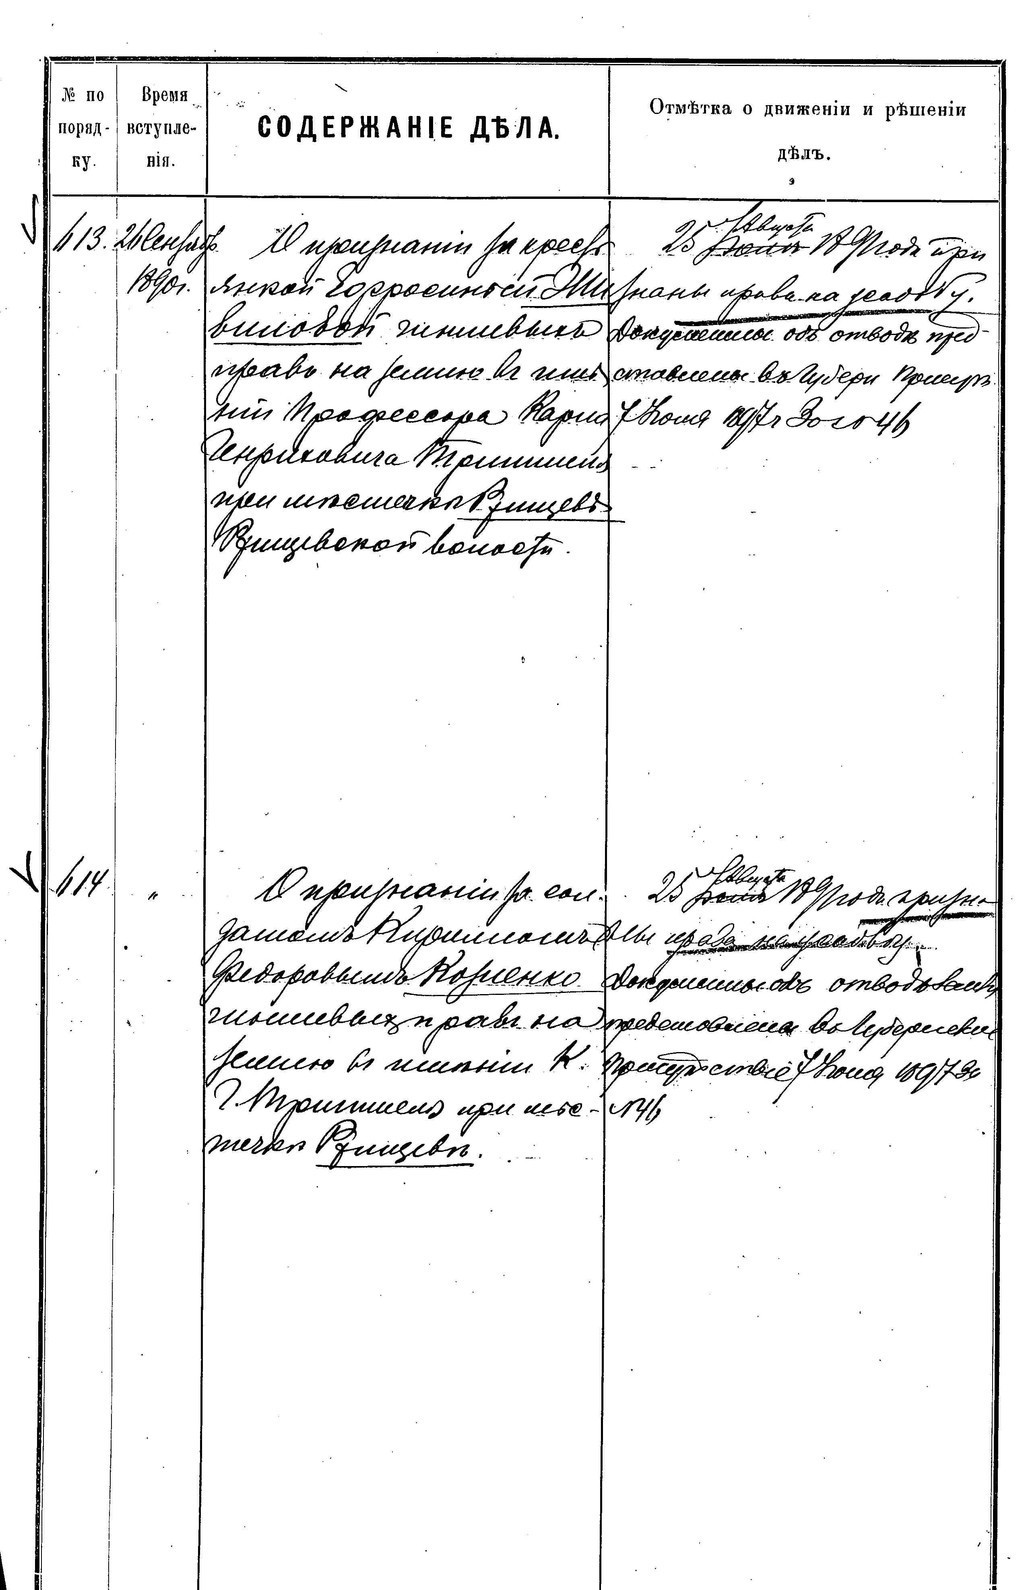 № по
поряд-
ку.
Время
вступле-
нія.
СОДЕРЖАНІЕ ДѢЛА.
Отмѣтка о движеніи и рѣшеніи
дѣлъ.
613.
26 Сентяб.
1890г.
О признаніи за кресть
янкой Ефросиньей Жи
виловой чиншевыхъ
правъ на землю въ имѣ
ніи Профессора Карла
Генриховича Тритшеля
при мѣстечкѣ Ржищевѣ
Ржищевской волости.
Августа
25 1891 года при
знаны права на усадьбу.
Документы объ отводѣ пред
ставлены въ Губерн
7 1897 г за № 46
614
"
О признаніи за сол-
датомъ Кирилломъ
Федоровымъ Козленко
чиншевыхъ правъ на
землю въ имѣніи К.
Г. Тритшеля при мѣс-
течкѣ Ржищевѣ.
Августа
25 1891 года призна
ны права на усадьбу.
Документы объ отводѣ
представлены въ Губернское
Присутствіе 7 1897 за
№ 46